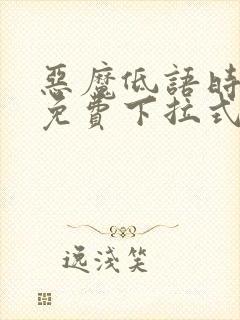 惡魔低語時
免費下拉式
逸淺笑